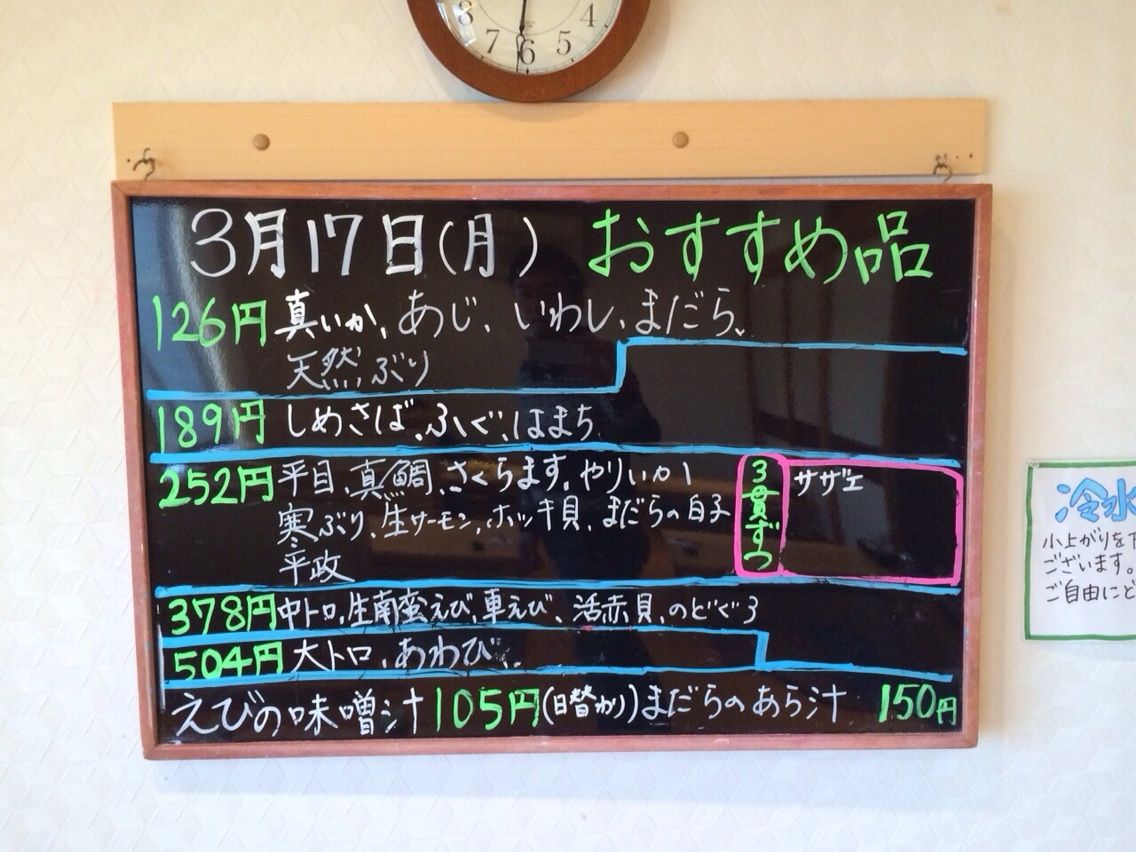 8 7 6 5 4
3月17日(月) おすすめ品
126円 真いか、あじ、いわし、まだら、
天然ぶり
189円 しめさば、ふぐ、はまち
252円 平目、真鯛、さくらます、やりいか
寒ぶり、生サーモン、ホッキ貝、まだらの白子
平政
3貫ずつ
サザエ
378円 中トロ、生南蛮えび、車えび、活赤貝、のどぐろ
504円 大トロ、あわび、
えびの味噌汁 105円 (日替わり) まだらのあら汁 150円
冷水
小上がりを下
ございます。
ご自由にど